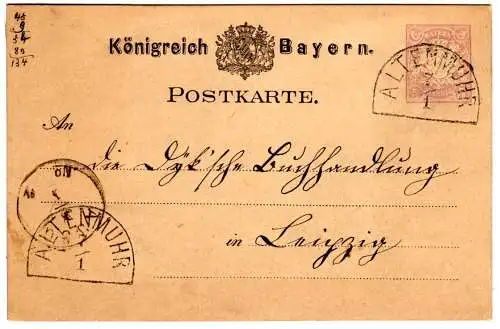 45
9
54
80
134
Königreich Bayern.
POSTKARTE.
ALTENMUHR
1
An
die Dyk'sche Buchhandlung
in Leipzig
ALTENMUHR
1